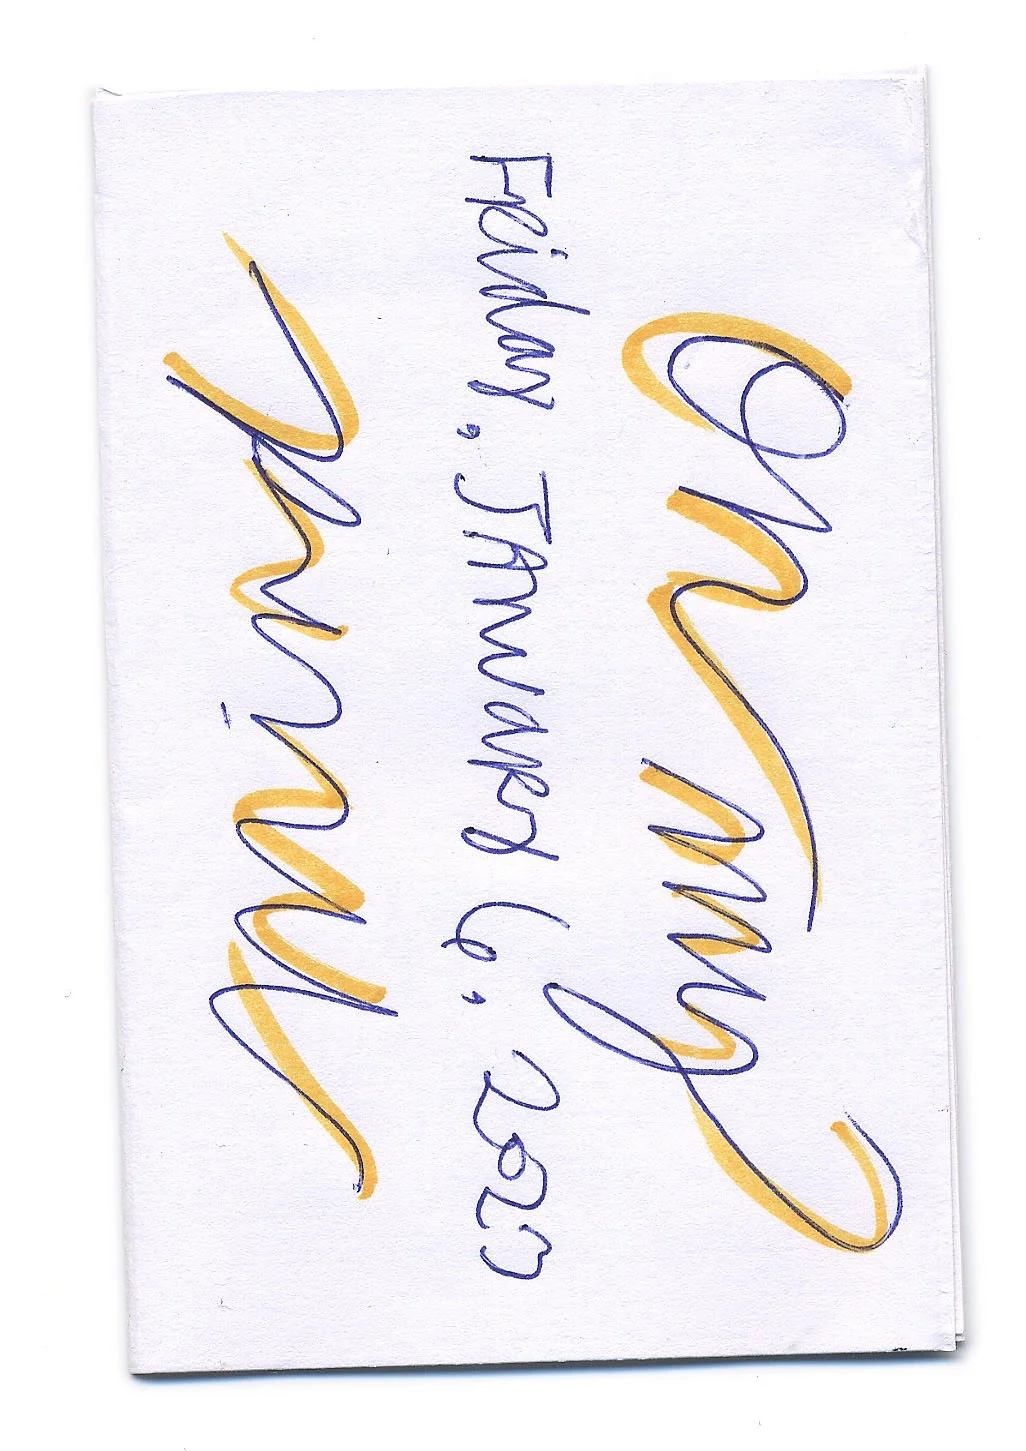 On my
FRiday, JANUARY 6, 2023
Mind